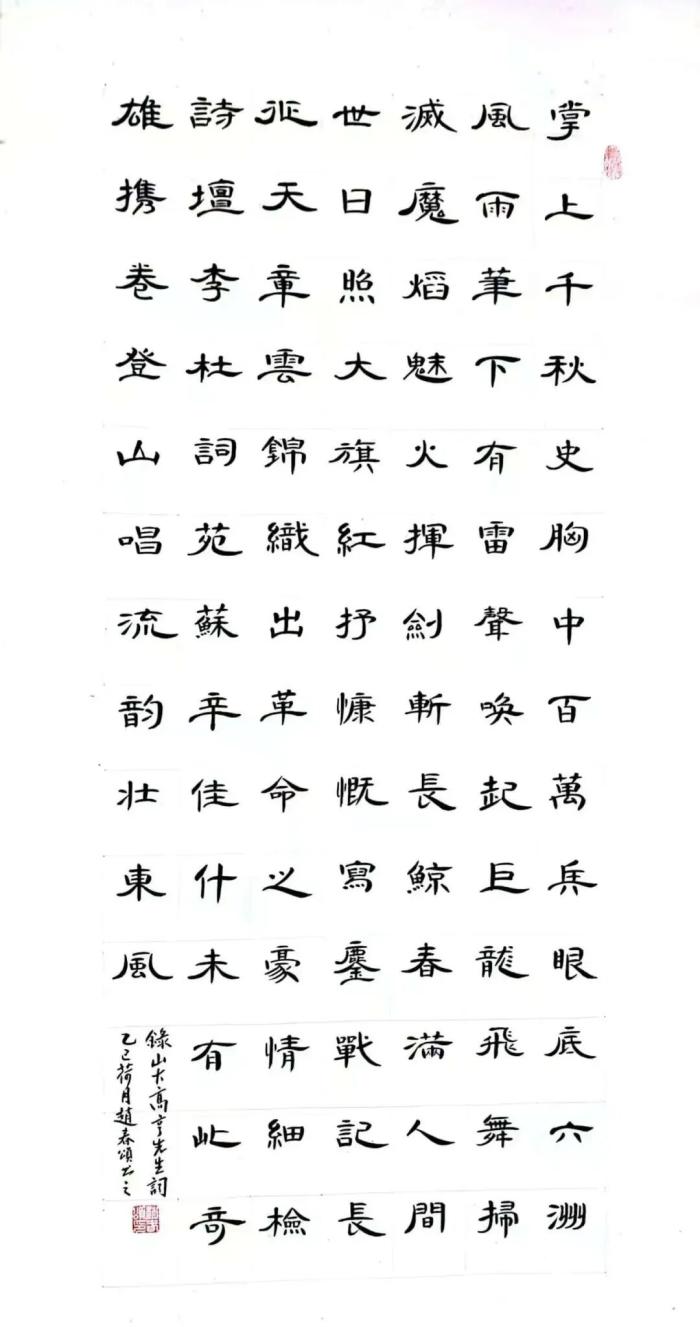 掌上千秋史胸中百萬兵眼底六洲
風雨筆下有雷聲喚起巨龍飛舞掃
滅魔焰魅火揮劍斬長鯨春滿人間
世日照大旗紅抒慷慨寫鏖戰記長
征天章雲錦織出革命之豪情細檢
詩壇李杜詞苑蘇辛佳什未有此奇
雄携卷登山唱流韵壯東風
錄山大高亨先生詞
乙巳荷月趙春頌書之